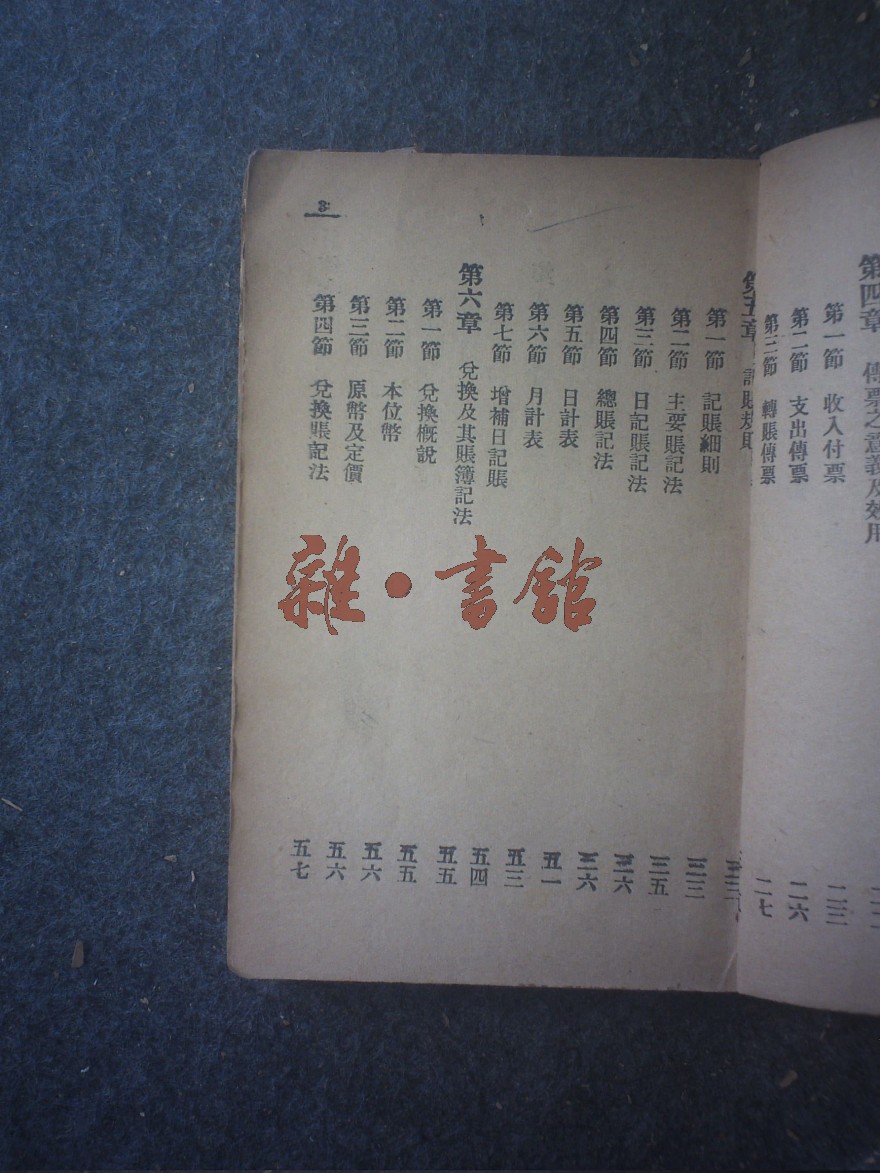 第四章 傳票之意義及效用
第一節 收入付票 二三
第二節 支出傳票 二六
第三節 轉賬傳票 二七
第五章 記賬規則
第一節 記賬細則 三三
第二節 主要賬記法 三五
第三節 日記賬記法 三六
第四節 總賬記法 三六
第五節 日計表 五一
第六節 月計表 五三
第七節 增補日記賬 五四
第六章 兌換及其賬簿記法 五五
第一節 兌換概說 五五
第二節 本位幣 五六
第三節 原幣及定價 五六
第四節 兌換賬記法 五七
3
雜·書館